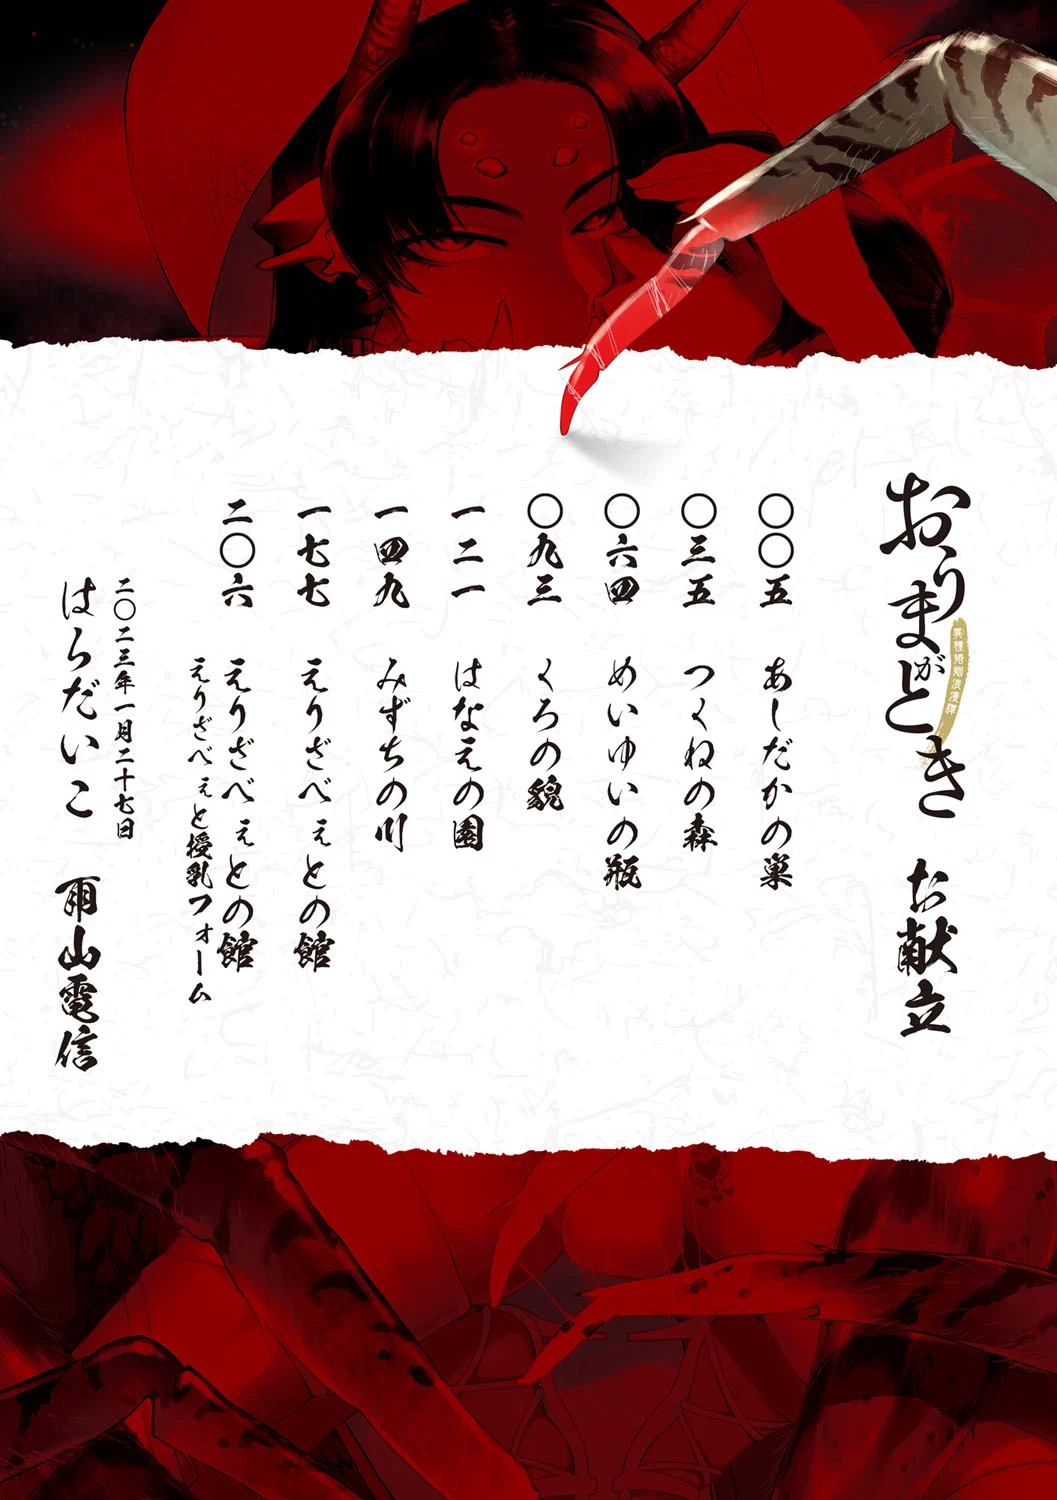 おうまがとき お献立
異種婚姻浪漫譚
〇〇五 あしだかの巣
〇三五 つくねの森
〇六四 めいゆいの瓶
〇九三 くろの貌
一二一 はなえの園
一四九 みずちの川
一七七 えりざべぇとの館
二〇六 えりざべぇとの館
えりざべぇと授乳フォーム
二〇二三年一月二十七日
はらだいこ 雨山電信